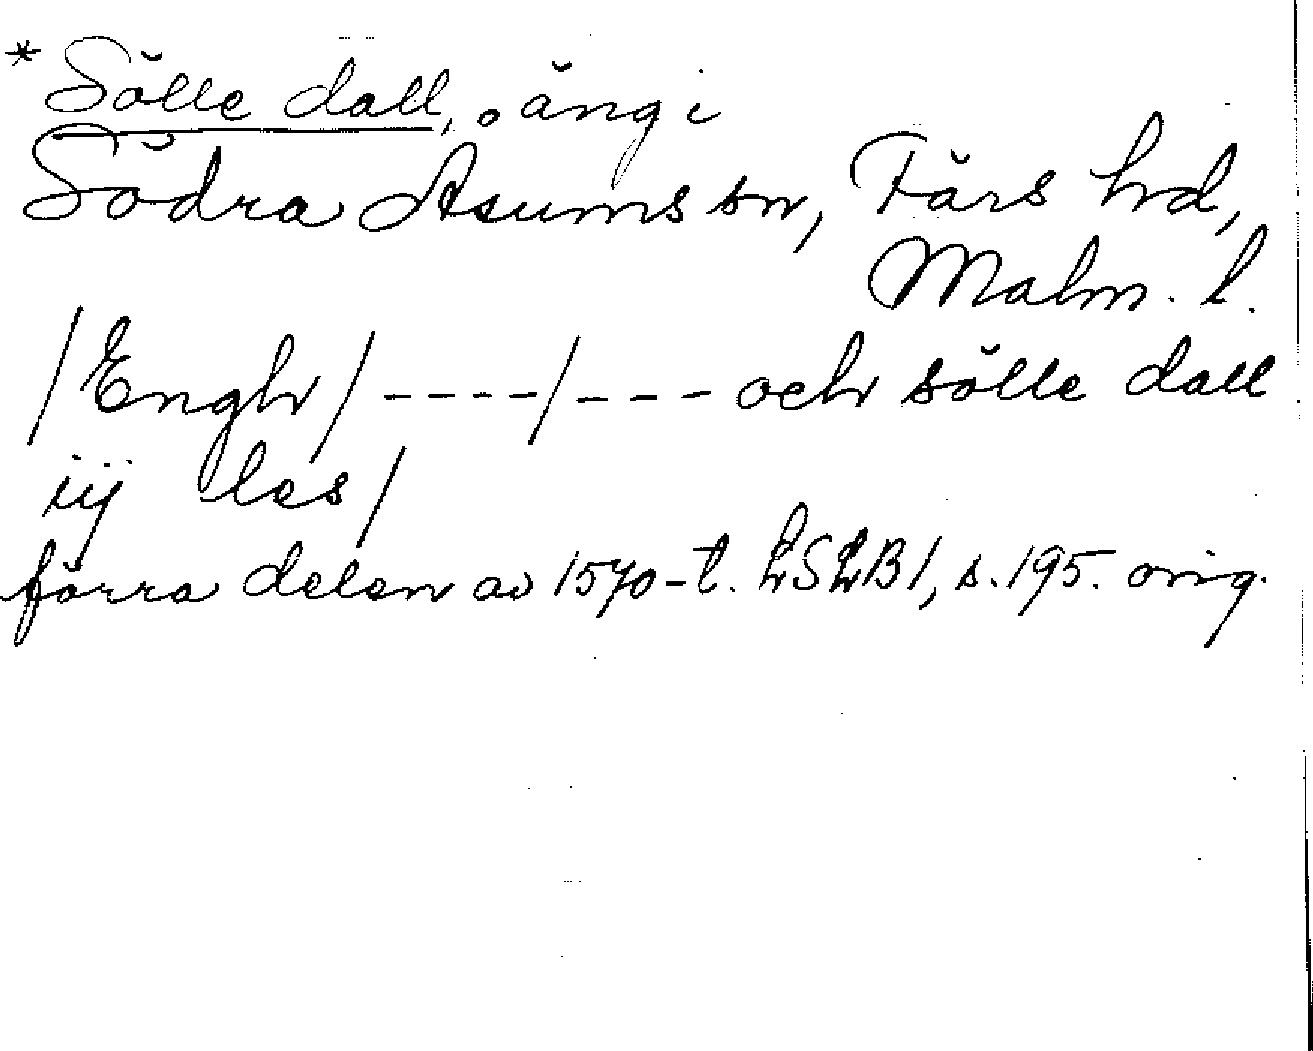 *Sölle dall, o äng i
Södra Åsums sn, Färs hd,
Malm. l.
/Engh/----/--- och sölle dall
iij les/
förra delen av 1570-t. LSLB1, s. 195. orig.